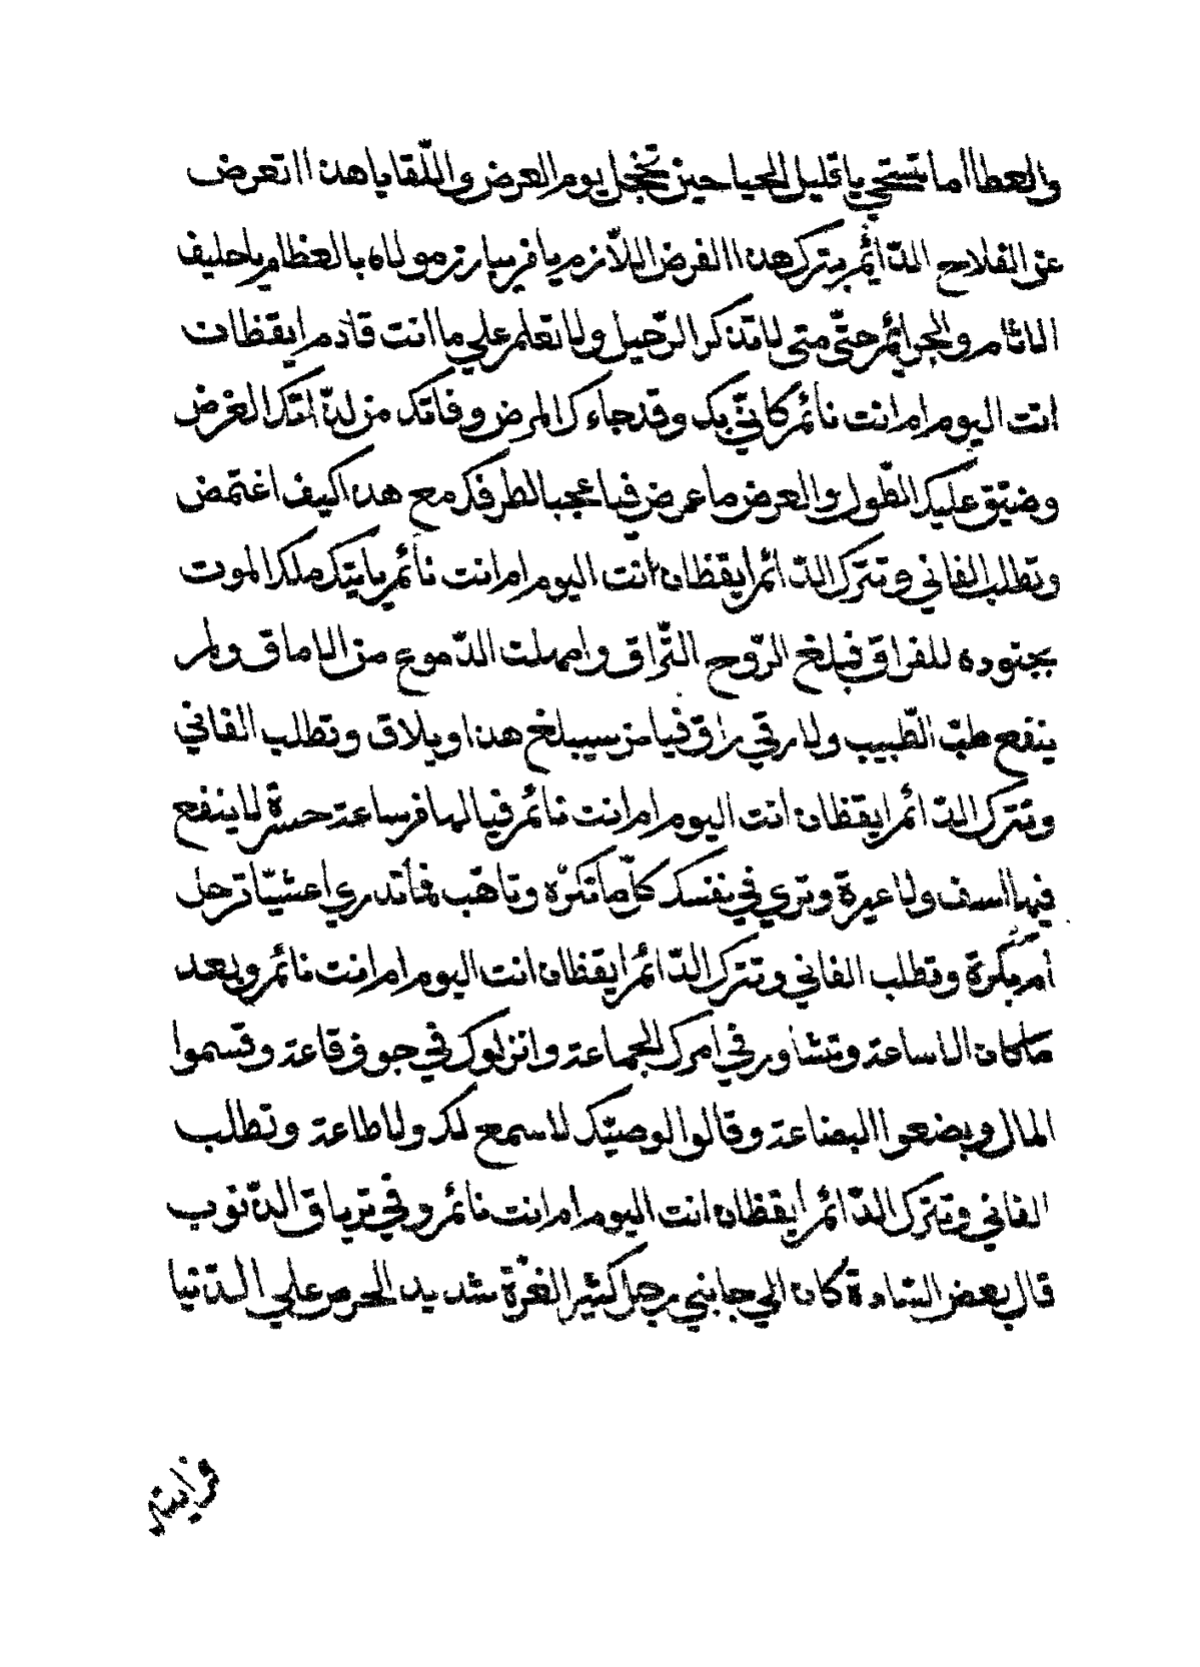 والعطا اما تستحي يا قليل الحيا حين تخجل يوم العرض واللّقا يا هذا اتعرض
عن الفلاح الدّائم بترك هذا الفرض اللاّزم يا فر يبارز مولاه بالعظايم يا حليف
الاثام والجرائم حتّي متي لا تذكر الرّحيل ولا تعلم علي ما انت قادم ايقظان
انت اليوم ام انت نائم كانّي بك وقد جاءك المرض وفاتك من لذّاتك الغرض
وضيّق عليك الطّول والعرض ما عرض فيا عجبا لطرفك مع هذا كيف اغتمض
وتطلب الفاني وتترك الدّائم ايقظان انت اليوم ام انت نائم ياتيك ملك الموت
بجنوده للفراق فبلغ الرّوح التّراق وامهلت الدّموع من الاماق ولم
ينفع طبّ الطّبيب ولا رقي راق فيا من سيبلغ هذا ويلاق وتطلب الفاني
وتترك الدّائم ايقظان انت اليوم ام انت نائم فيا لها فر ساعة حسرة لا ينفع
فيها اسف ولا عبرة وتري في نفسك كلّ ما تكره وتاهّب فما تدري اعشيّا ترحل
ام بكرة وتطلب الفاني وتترك الدّائم ايقظان انت اليوم ام انت نائم وبعد
ما كان الا ساعة وتشاور في امرك الجماعة وانزلوك في جوف قاعة وقسموا
المال وبضعوا البضاعة وقالوا لوصيّتك لا سمع لك ولا طاعة وتطلب
الفاني وتترك الدّائم ايقظان انت اليوم ام انت نائم وفي ترياق الذّنوب
قال بعض السّادة كان الي جانبي رجل كثير الغرّة شديد الحرص علي الدّنيا
فرايته